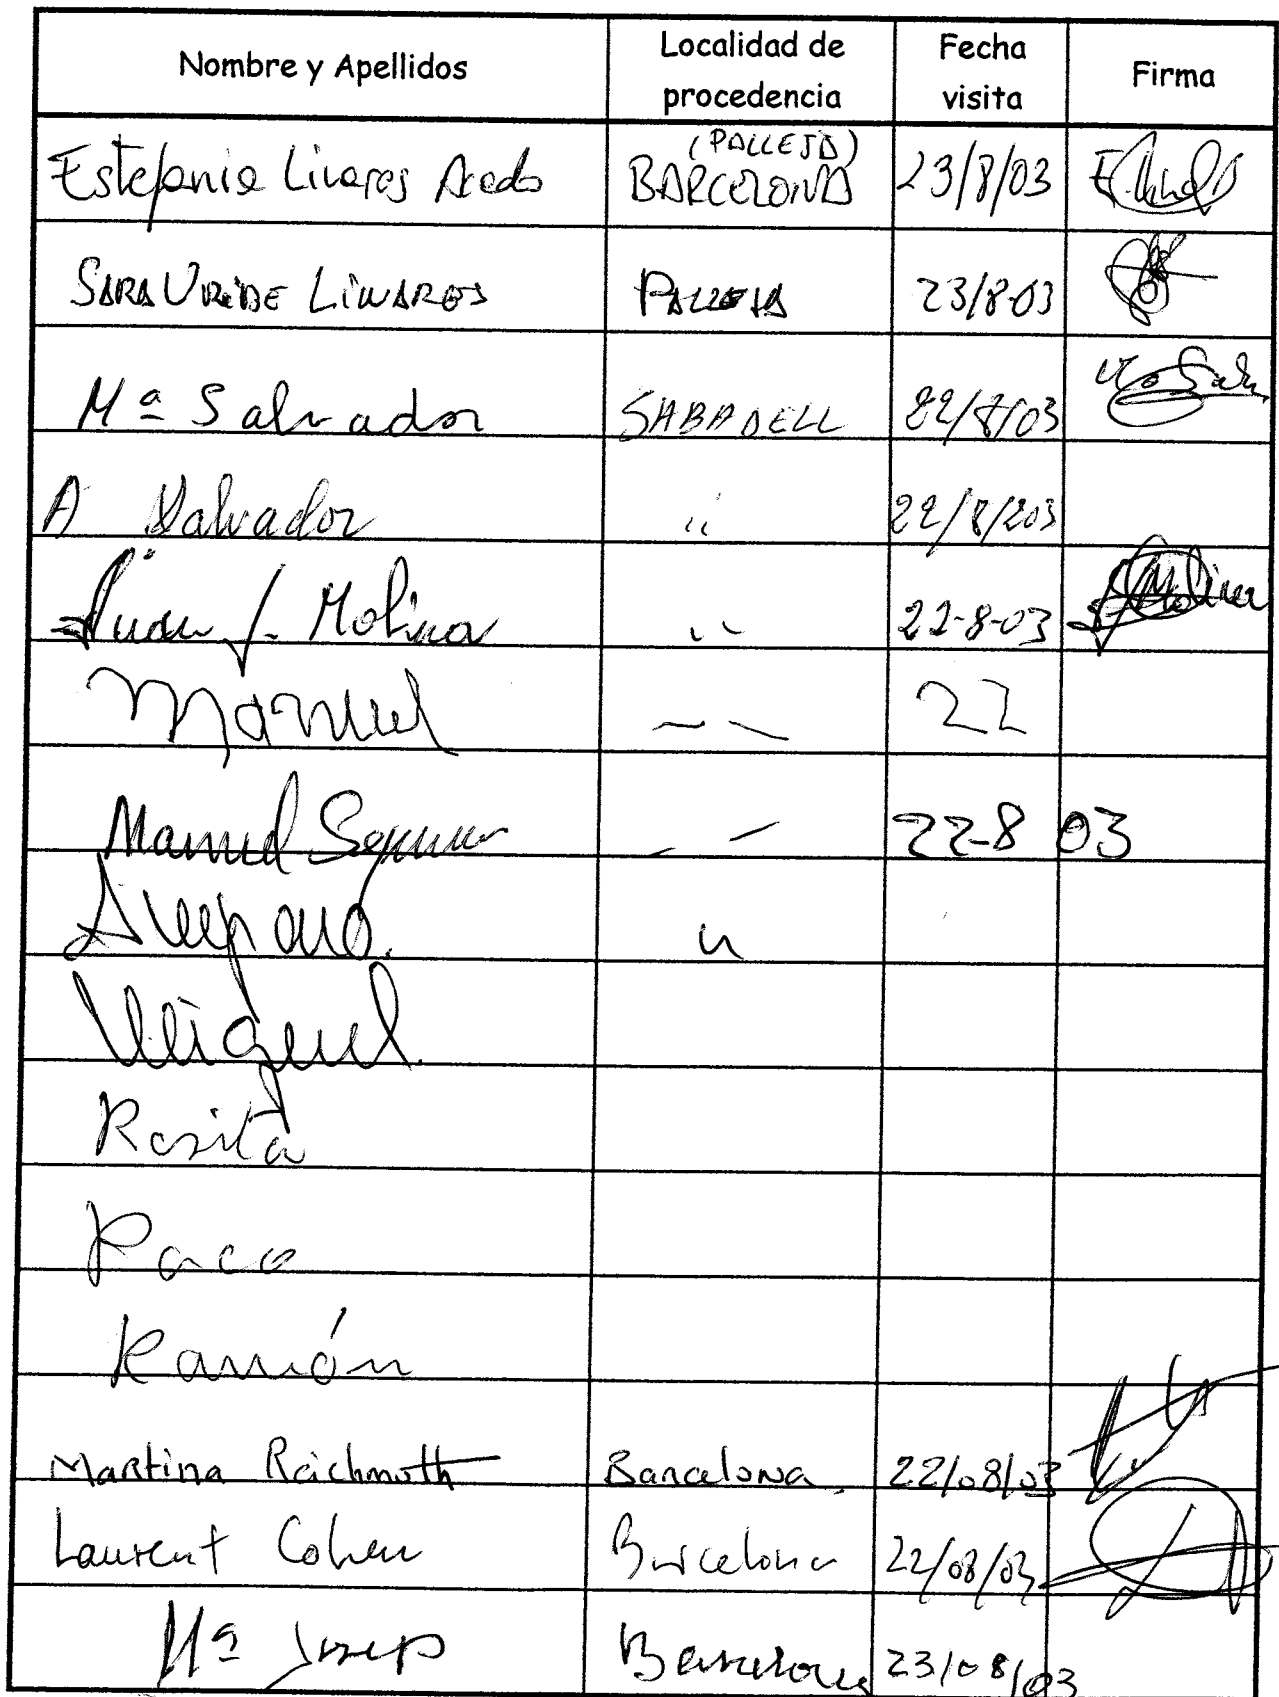 Nombre y Apellidos
Localidad de procedencia
Fecha visita
Firma
Estefania Linares Acedo (PALLEJA) BARCELONA 23/8/03
SARA URIBE LINARES PALLEJA 23/8-03
Mª Salvador SABADELL 22/8/03
A Salvador " 22/8/203
Juan J. Molina " 22-8-03 Molina
Manuel 22
Manuel 22-8 03
Amparo. "
Miguel.
Rosita
Paco
Ramón
Martina Reichmuth Barcelona 22/08/03
Laurent Cohen Barcelona 22/08/03
Mª Josep Barcelona 23/08/03